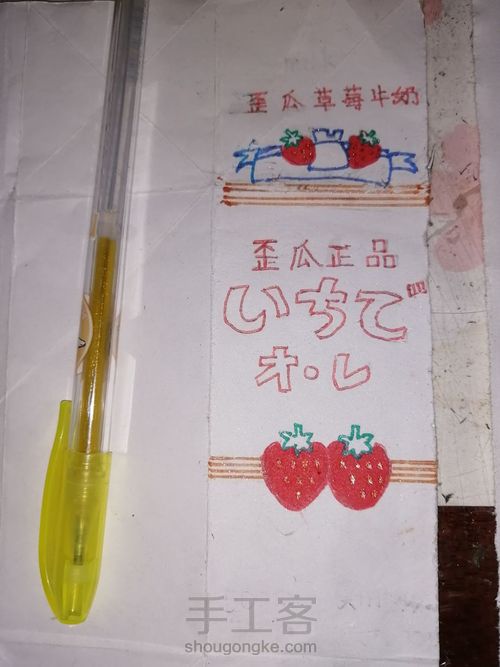 歪瓜草莓牛奶
歪瓜正品
いちご
オ・レ
手工客
shougongke.com